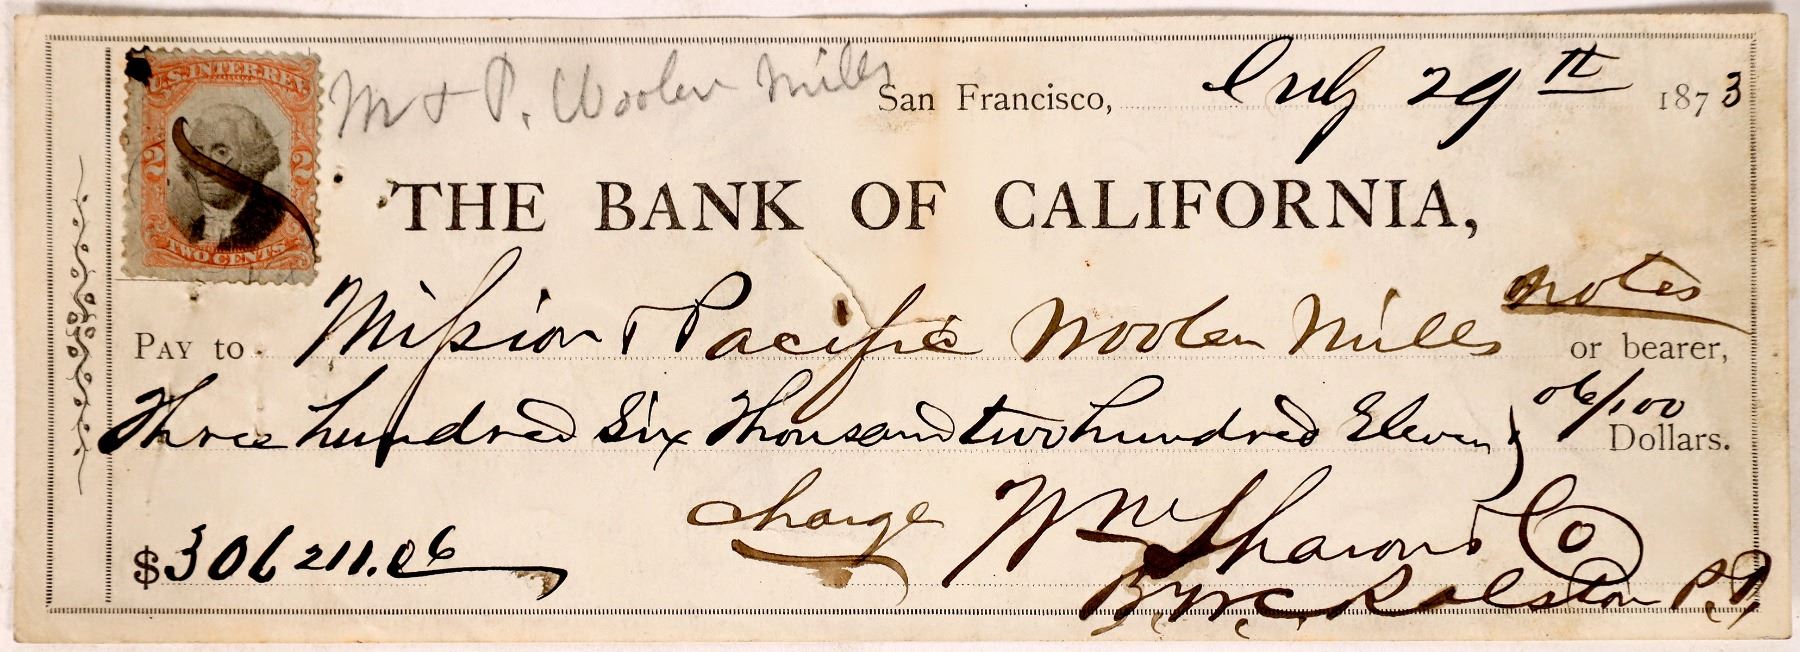 U.S. INTER. REV.
2 2
TWO CENTS
M & P. Woolen Mills
San Francisco, July 29th 1873
THE BANK OF CALIFORNIA,
notes
Pay to Mission & Pacific Woolen Mills or bearer,
Three hundred Six Thousand two hundred Eleven 06/100 Dollars.
charge Wm Sharon & Co
$306211.06
By W. C. Ralston P.P.